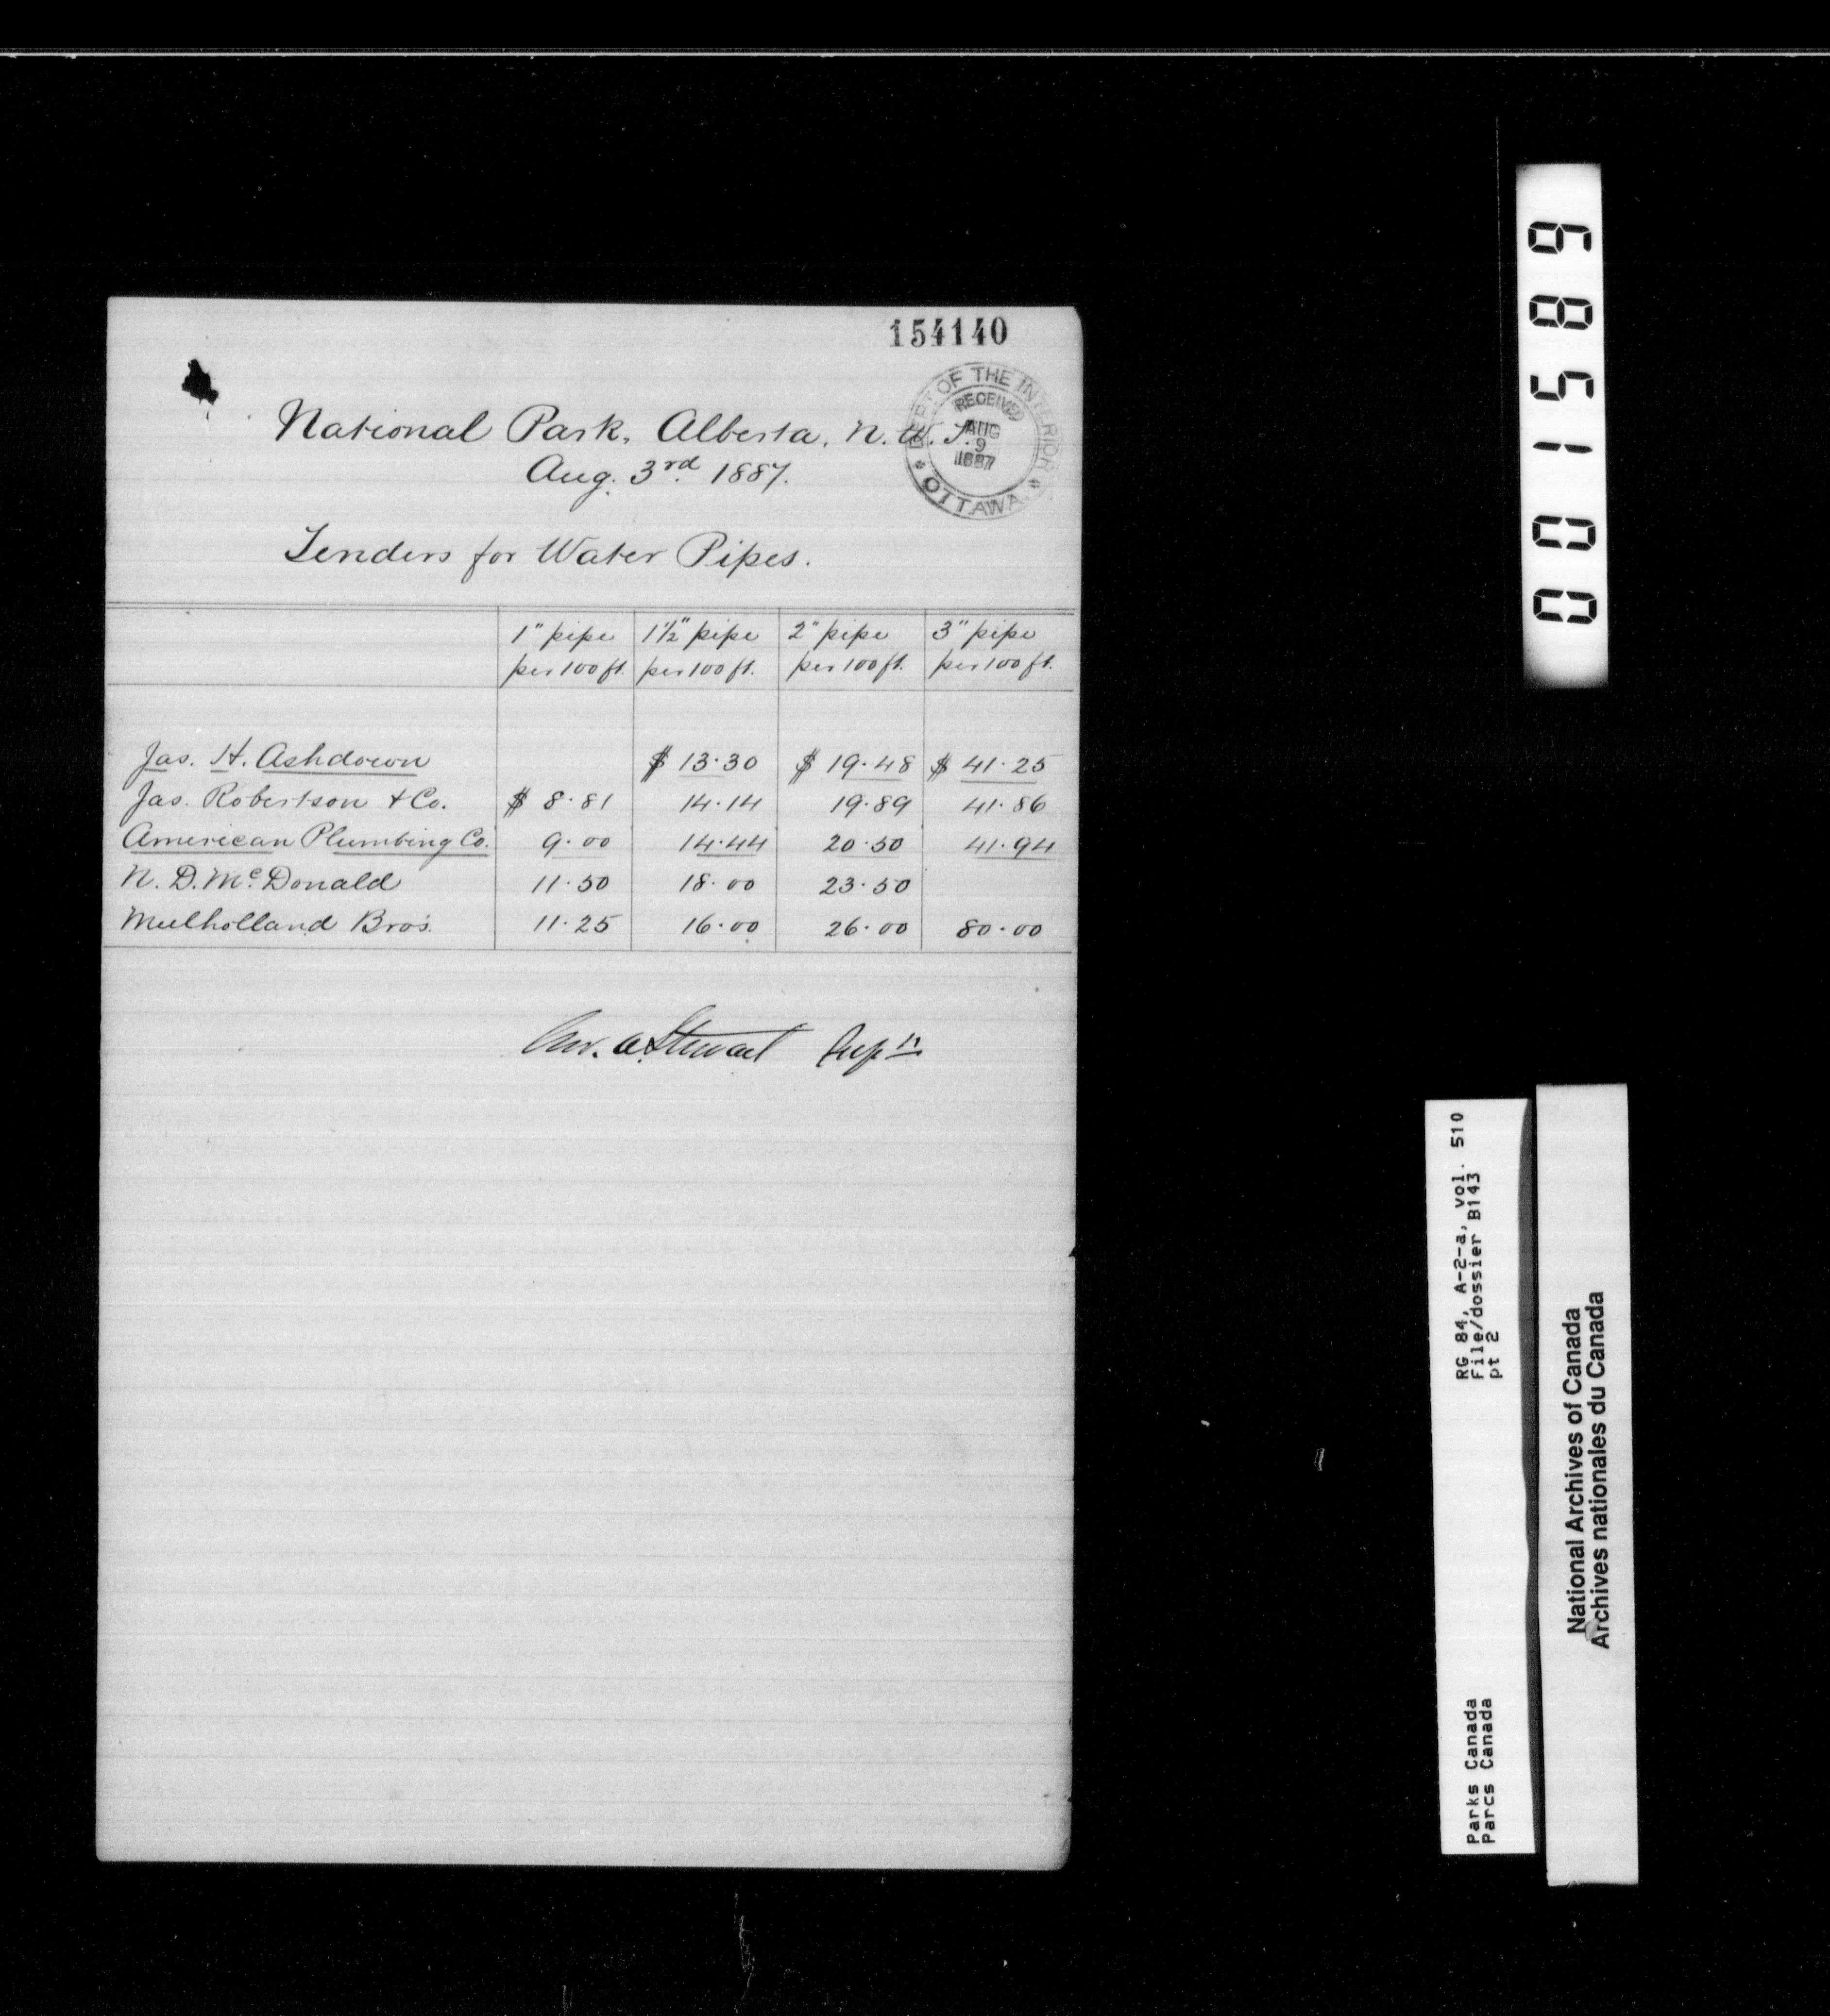 154140
DEPT OF THE INTERIOR
RECEIVED
AUG
9
1887
OTTAWA
National Park, Alberta, N.W.T.
Aug. 3rd 1887.
Tenders for Water Pipes.
1" pipe 1½" pipe 2" pipe 3" pipe
per 100 ft. per 100 ft. per 100 ft. per 100 ft.
Jas. H. Ashdown $ 13.30 $ 19.48 $ 41.25
Jas. Robertson & Co. $ 8.81 14.14 19.89 41.86
American Plumbing Co. 9.00 14.44 20.50 41.94
N. D. McDonald 11.50 18.00 23.50
Mulholland Bros. 11.25 16.00 26.00 80.00
Stewart Supt
0015189
RG 84, A-2-a, vol. 510
File/dossier B143
pt 2
Parks Canada
Parcs Canada
National Archives of Canada
Archives nationales du Canada